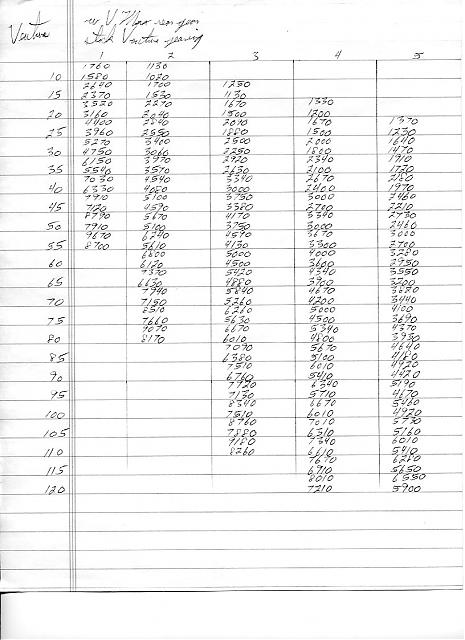 Venture
w V Max rear gear
stock Venture gearing
1 2 3 4 5
1760 1130
10 1580 1020
2640 1700 1250
15 2370 1530 1130
3520 2270 1670 1330
20 3160 2040 1500 1200
4400 2840 2090 1670 1370
25 3960 2550 1880 1500 1230
5270 3400 2500 2000 1640
30 4750 3060 2250 1800 1470
6150 3970 2920 2340 1910
35 5540 3570 2630 2100 1720
7030 4540 3340 2670 2180
40 6330 4080 3000 2400 1970
7910 5100 3750 3000 2460
45 7120 4590 3380 2700 2210
8790 5670 4170 3340 2730
50 7910 5100 3750 3000 2460
9670 6240 4590 3670 3000
55 8700 5610 4130 3300 2700
6800 5000 4000 3280
60 6120 4500 3600 2950
7370 5420 4340 3550
65 6630 4880 3900 3200
7940 5840 4670 3830
70 7150 5260 4200 3440
8510 6260 5000 4100
75 7660 5630 4500 3690
9070 6670 5340 4370
80 8170 6010 4800 3930
7090 5670 4640
85 6380 5100 4180
7510 6010 4920
90 6760 5410 4420
7920 6340 5190
95 7130 5710 4670
8340 6670 5460
100 7510 6010 4920
8760 7010 5730
105 7880 6310 5160
9180 7340 6010
110 8260 6610 5410
7670 6280
115 6910 5650
8010 6550
120 7210 5900